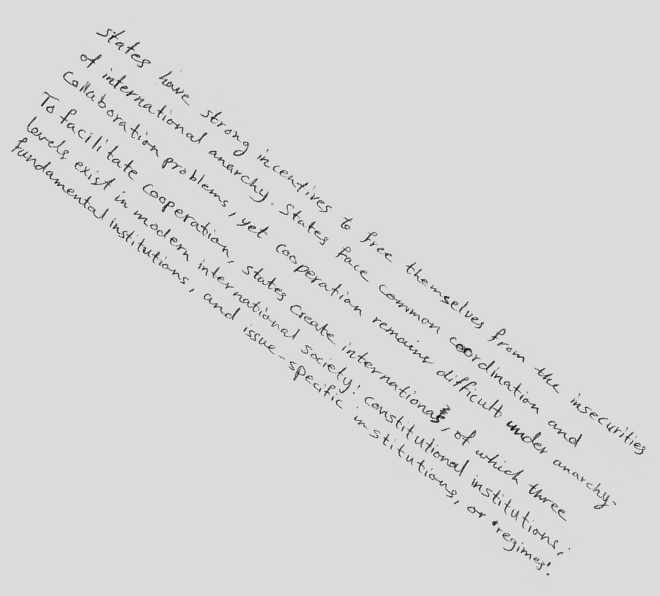 States have strong incentives to free themselves from the insecurities
of international anarchy. States face common coordination and
Collaboration problems, yet cooperation remains difficult under anarchy.
To facilitate cooperation, states create internationals, of which three
levels exist in modern international society: constitutional institutions,
fundamental institutions, and issue-specific institutions, or 'regimes'.